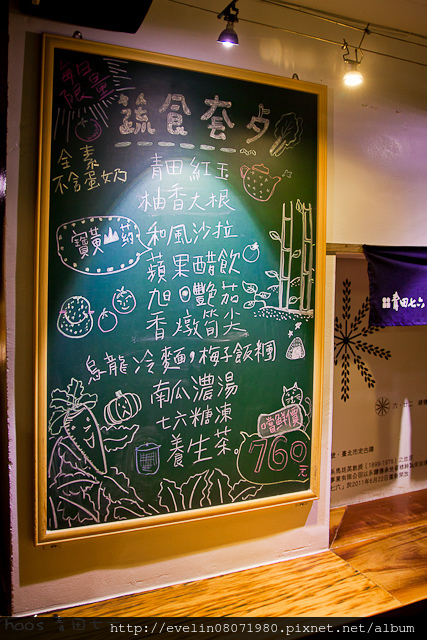 每日
限量
蔬食套歺
全素
不含蛋奶
青田紅玉
柚香大根
寶黃山葯
和風沙拉
蘋果醋飲
旭日艷茄
香燉筍尖
烏龍冷麵,梅子飯糰
南瓜濃湯
七六糖凍
養生茶
嚐鮮價
760元
青田七六
http://evelin08071980.pixnet.net/album